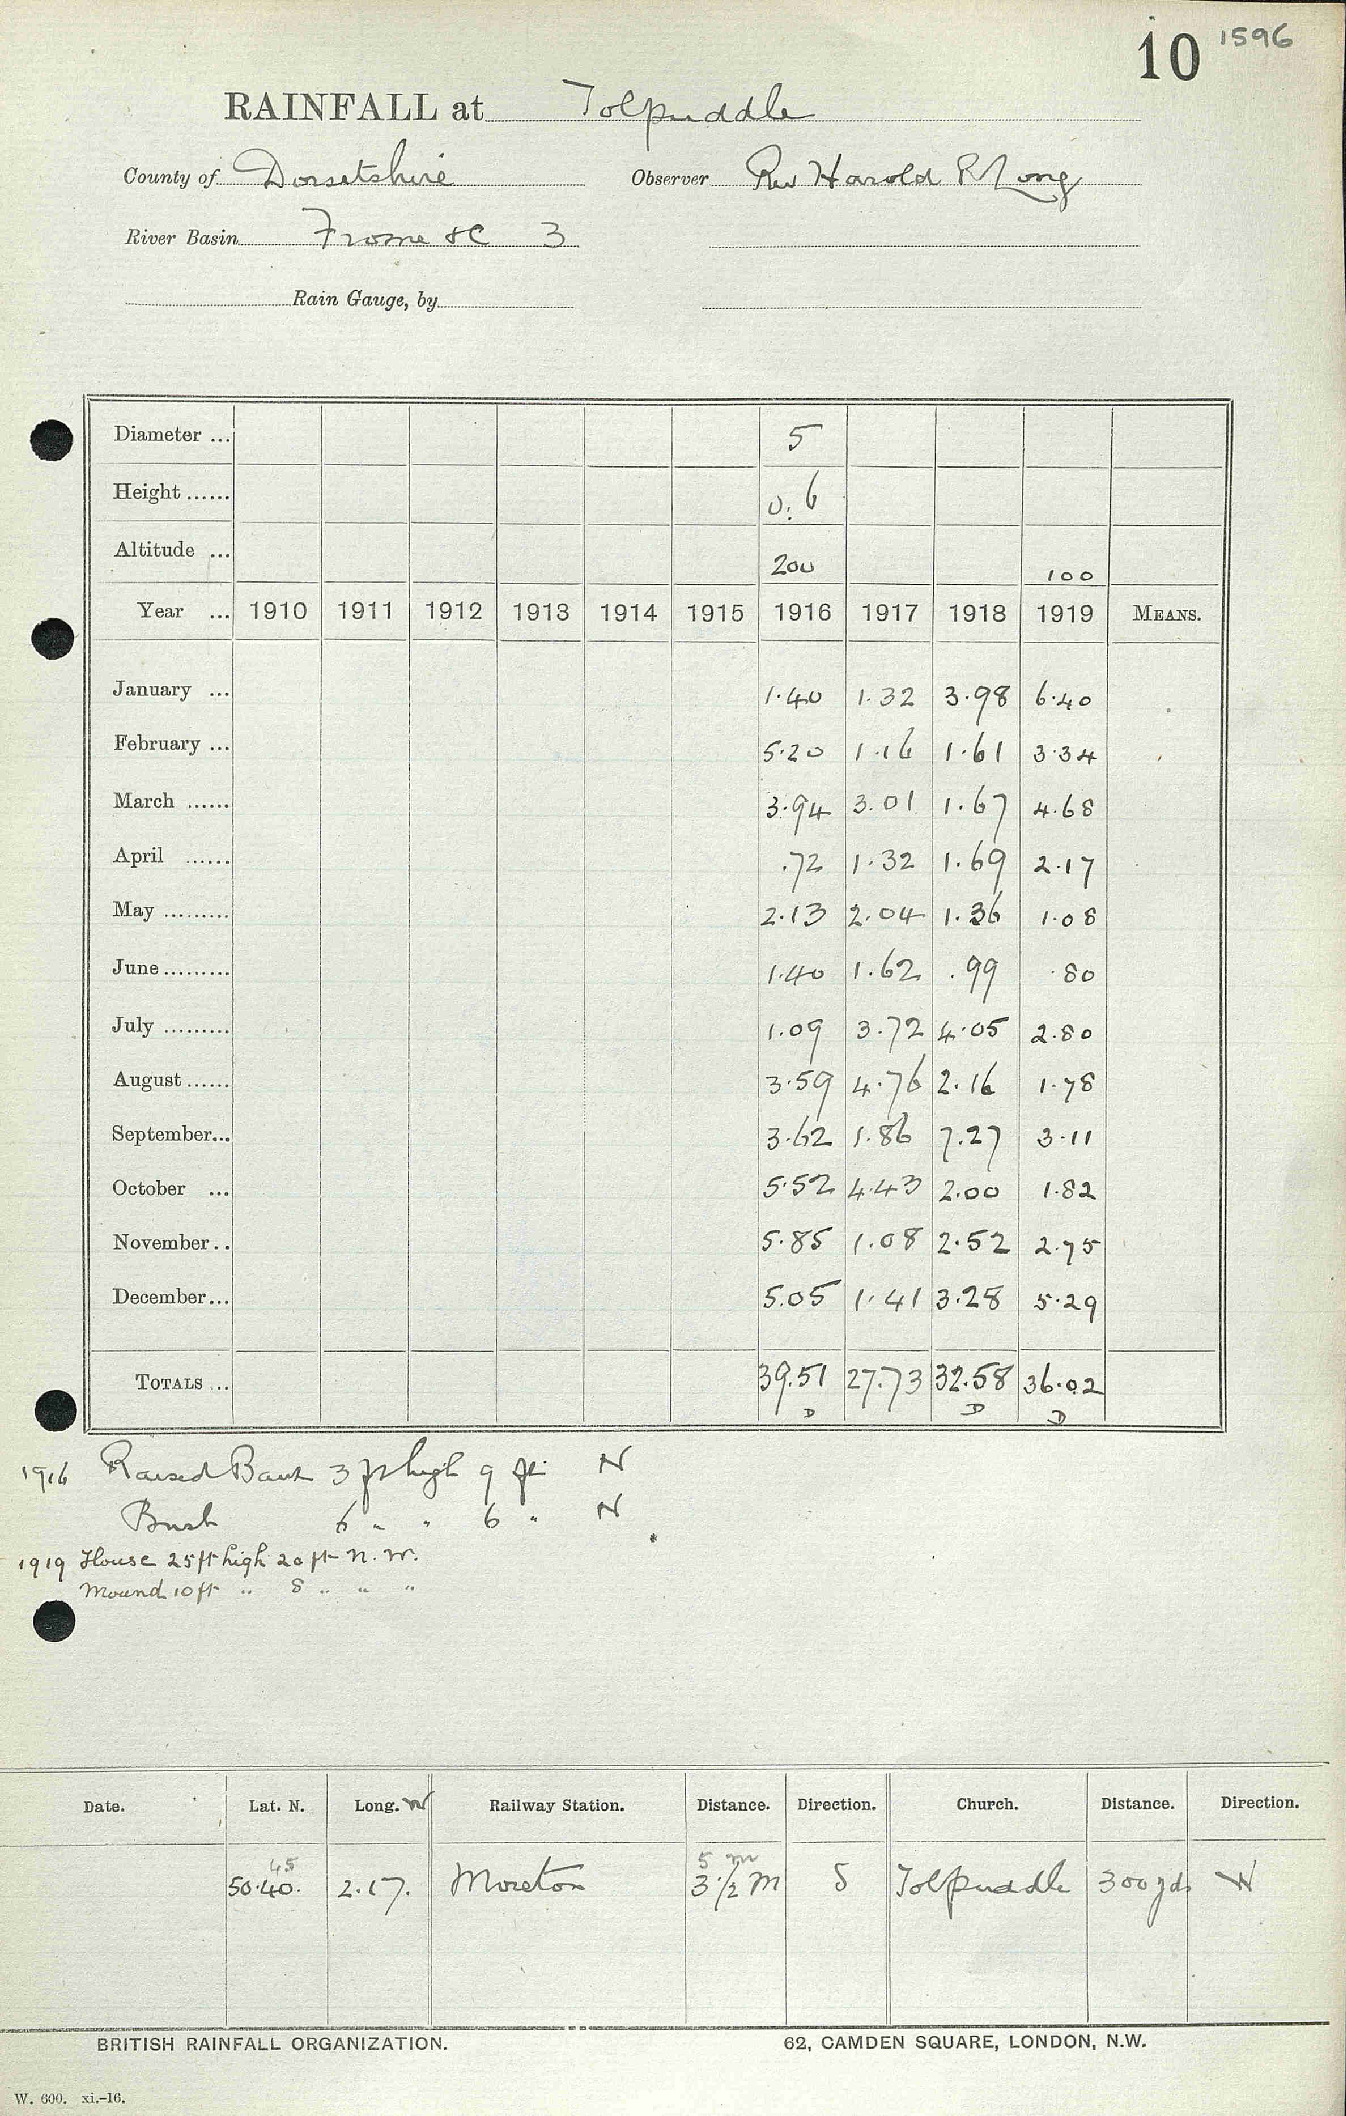 10 1596
RAINFALL at Tolpuddle
County of Dorsetshire Observer Rev Harold R Long
River Basin Frome &c 3
Rain Gauge, by
Diameter ... 5
Height ...... 0.6
Altitude ... 200 100
Year ... 1910 1911 1912 1913 1914 1915 1916 1917 1918 1919 MEANS.
January ... 1.40 1.32 3.98 6.40
February ... 5.20 1.16 1.61 3.34
March ...... 3.94 3.01 1.67 4.68
April ...... .72 1.32 1.69 2.17
May ......... 2.13 2.04 1.36 1.08
June ......... 1.40 1.62 .99 .80
July ......... 1.09 3.72 4.05 2.80
August ...... 3.59 4.76 2.16 1.78
September... 3.62 1.86 7.27 3.11
October ... 5.52 4.43 2.00 1.82
November.. 5.85 1.08 2.52 2.75
December... 5.05 1.41 3.28 5.29
TOTALS ... 39.51 27.73 32.58 36.02
D D D
1916 Raised Bank 3 ft high 9 ft N
Bush 6 " " 6 " N
1919 House 25ft high 20 ft N.W.
Mound 10ft " 8 " " "
Date. Lat. N. Long. W Railway Station. Distance. Direction. Church. Distance. Direction.
45 5 m
50.40. 2.17. Moreton 3 1/2 M S Tolpuddle 300 yds W
BRITISH RAINFALL ORGANIZATION. 62, CAMDEN SQUARE, LONDON, N.W.
W. 600. xi.-16.